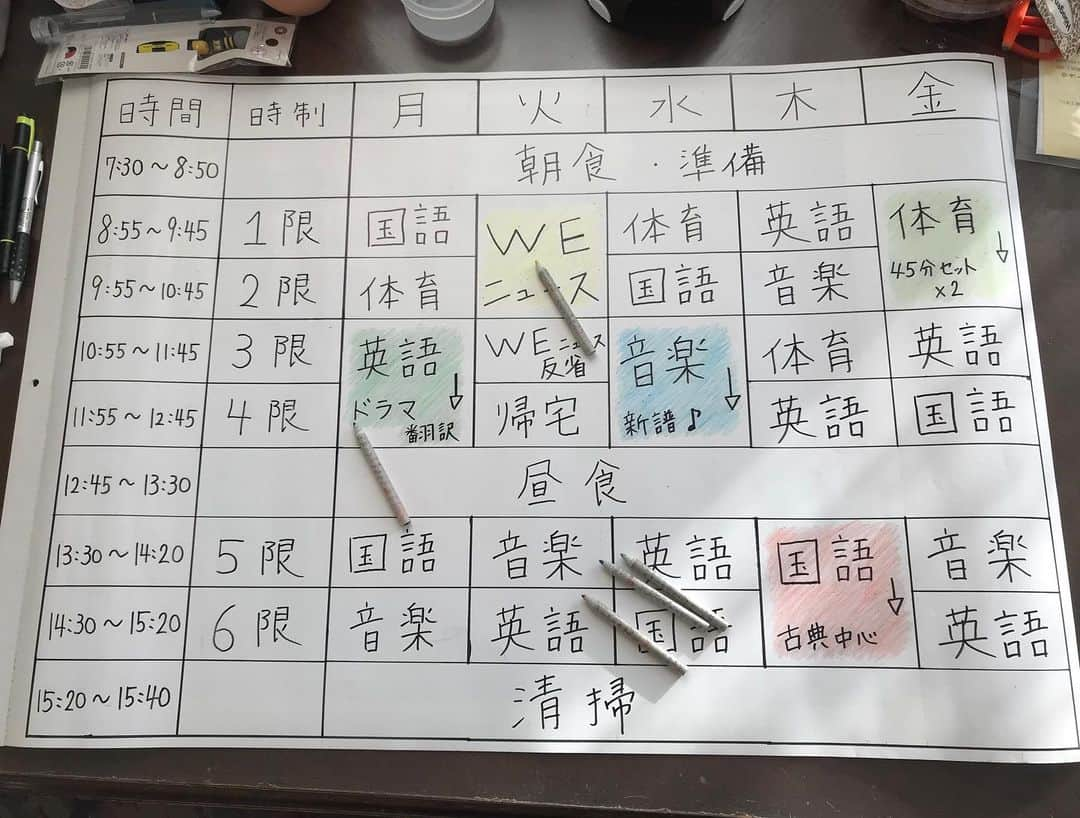 時間 時制 月 火 水 木 金
7:30～8:50 朝食・準備
8:55～9:45 1限 国語 WE 体育 英語 体育↓
9:55～10:45 2限 体育 ニュース 国語 音楽 45分セット
×2
10:55～11:45 3限 英語↓ WEニュース 音楽↓ 体育 英語
反省
11:55～12:45 4限 ドラマ 帰宅 新譜♪ 英語 国語
翻訳
12:45～13:30 昼食
13:30～14:20 5限 国語 音楽 英語 国語↓ 音楽
14:30～15:20 6限 音楽 英語 国語 古典中心 英語
15:20～15:40 清掃